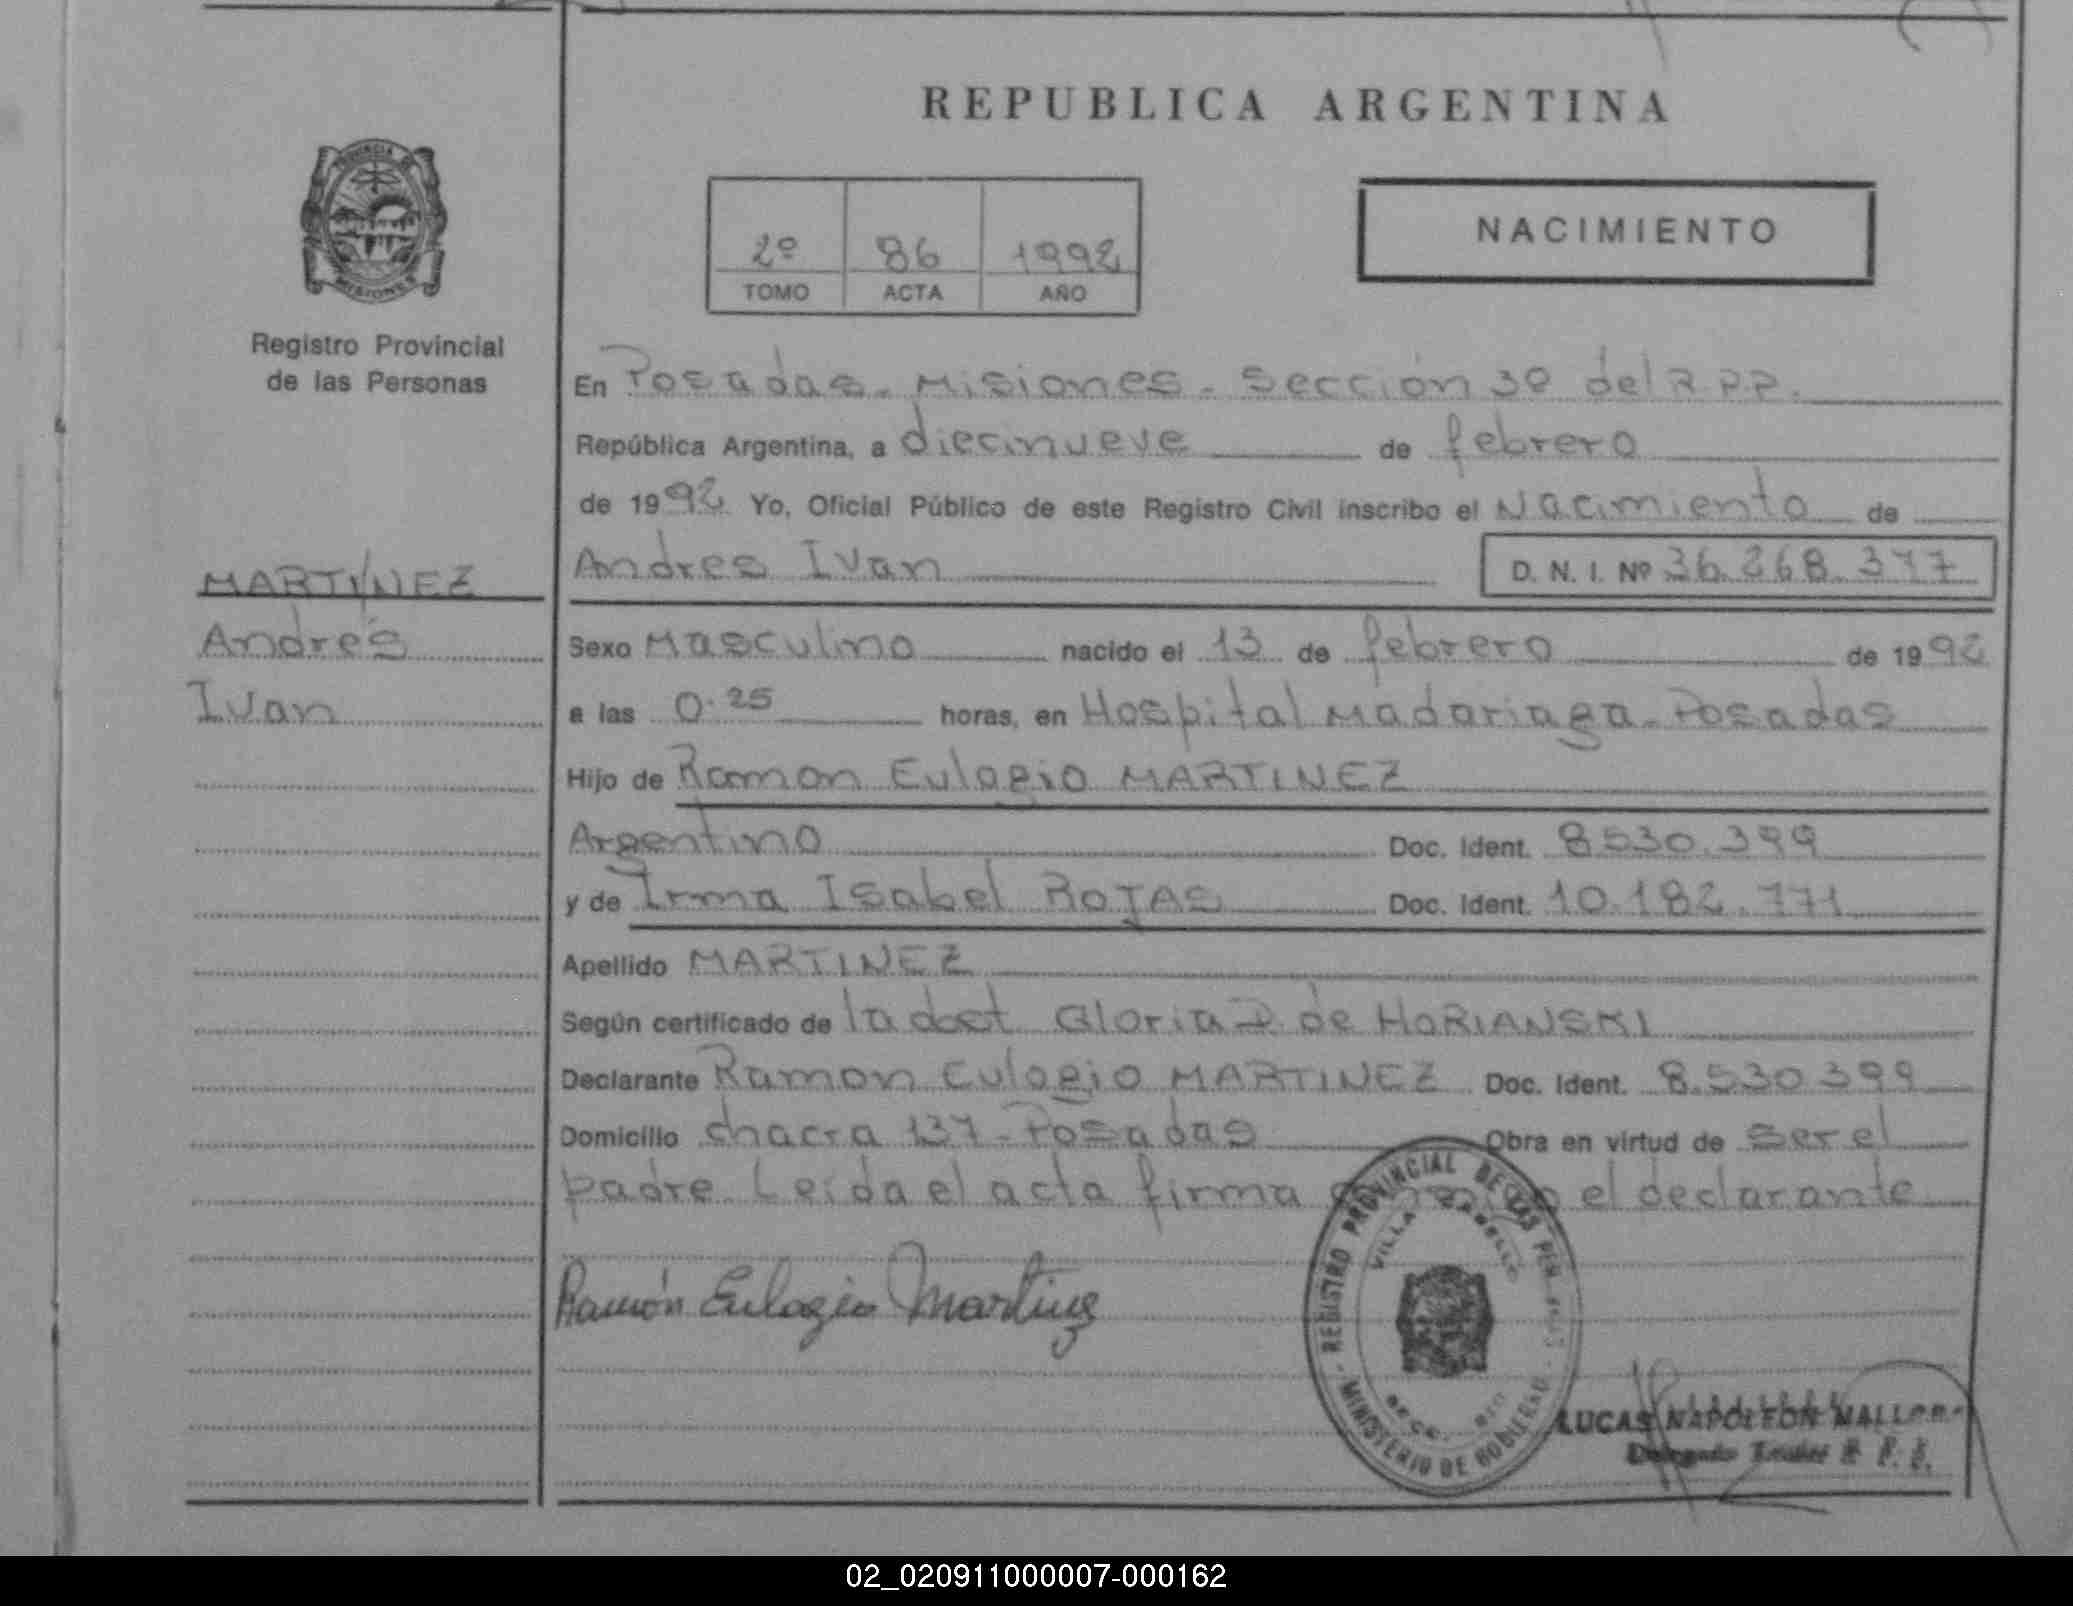 REPUBLICA ARGENTINA
PROVINCIA DE
MISIONES
Registro Provincial
de las Personas
2º 86 1992
TOMO ACTA AÑO
NACIMIENTO
En Posadas - Misiones - Sección 3º del R.P.P.
República Argentina, a diecinueve de febrero
de 1992 Yo, Oficial Público de este Registro Civil inscribo el Nacimiento de
Andres Ivan D. N. I. Nº 36.268.377
MARTINEZ
Andrés
Ivan
Sexo Masculino nacido el 13 de febrero de 1992
a las 0.25 horas, en Hospital Madariaga - Posadas
Hijo de Ramon Eulogio MARTINEZ
Argentino Doc. Ident. 8530.399
y de Irma Isabel ROJAS Doc. Ident. 10.182.771
Apellido MARTINEZ
Según certificado de la doct Gloria D. de HORIANSKI
Declarante Ramon Eulogio MARTINEZ Doc. Ident. 8.530399
Domicilio chacra 137 - Posadas Obra en virtud de ser el
padre Leida el acta firma el declarante
Ramón Eulogio Martinez
REGISTRO PROVINCIAL DE LAS PERSONAS
VILLA CABELLO
MINISTERIO DE GOBIERNO
LUCAS NAPOLEON
Delegado
02_020911000007-000162